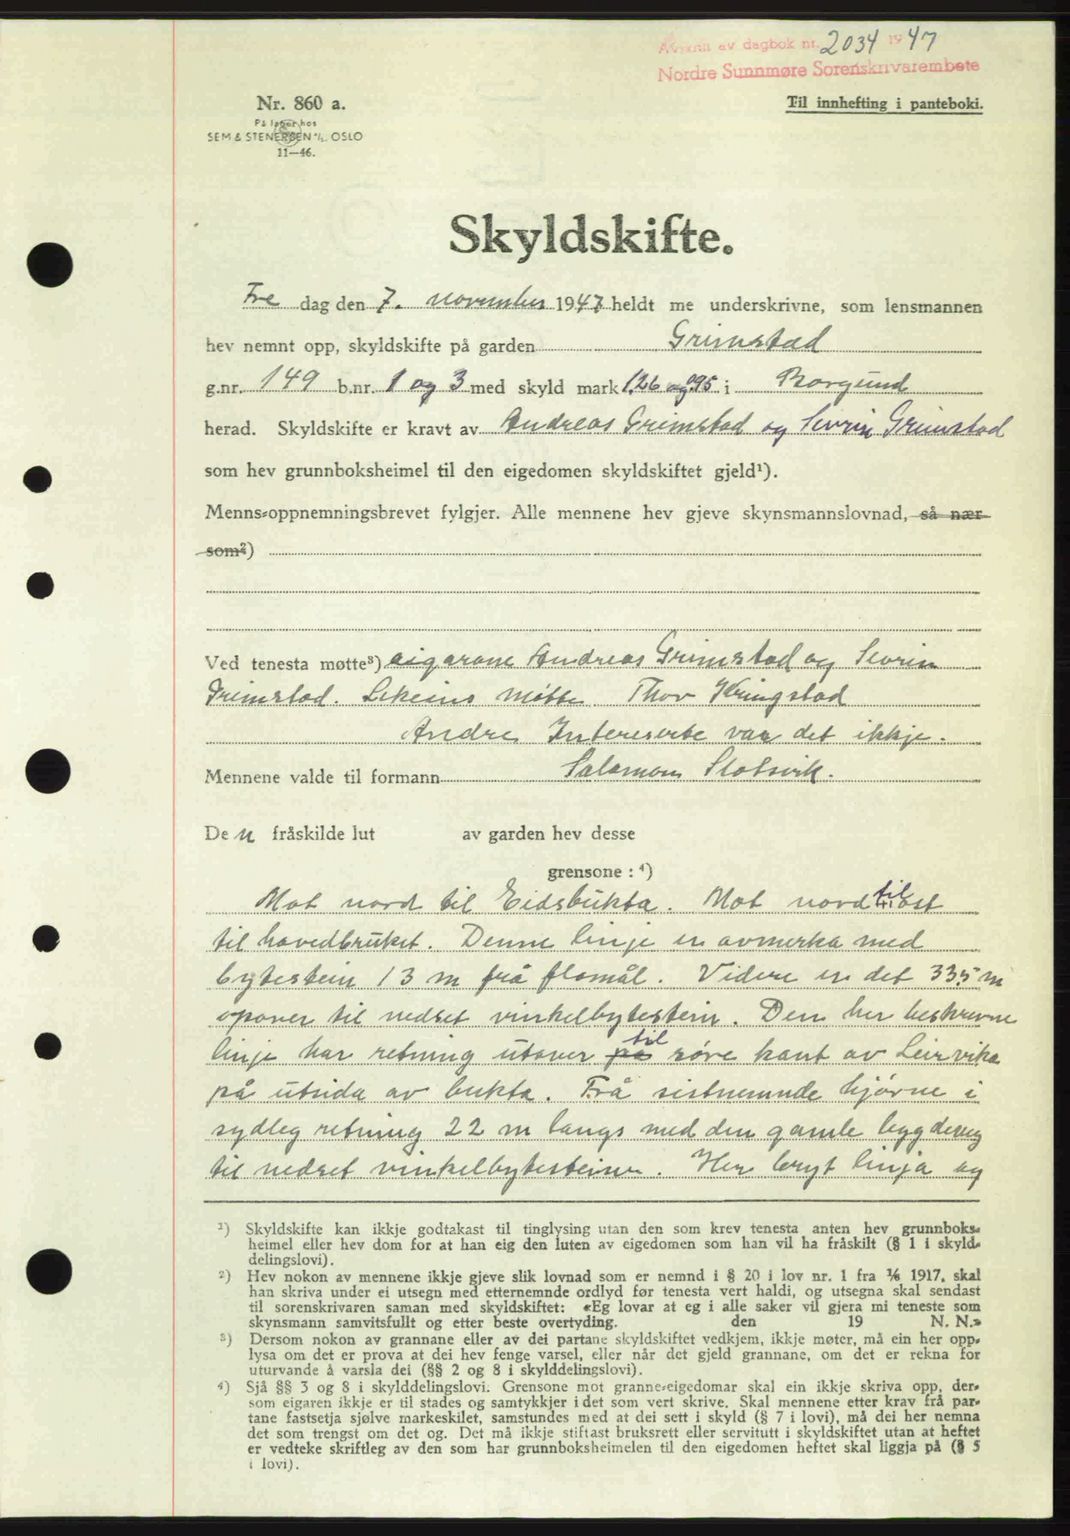 Avskrift av dagbok nr. 2034 1947
Nordre Sunnmøre Sorenskrivarembete
Nr. 860 a.
På lager hos
SEM & STENERSEN A/S. OSLO
11—46.
Til innhefting i panteboki.
Skyldskifte.
Fre dag den 7. november 1947 heldt me underskrivne, som lensmannen
hev nemnt opp, skyldskifte på garden Grimstad
g.nr. 149 b.nr. 1 og 3 med skyld mark 1,26 og 0,95 i Borgund
herad. Skyldskifte er kravt av Andreas Grimstad og Sevrin Grimstad
som hev grunnboksheimel til den eigedomen skyldskiftet gjeld¹).
Menns-oppnemningsbrevet fylgjer. Alle mennene hev gjeve skynsmannslovnad, så nær
som²)
Ved tenesta møtte³) eigarane Andreas Grimstad og Sevrin
Grimstad. Likeins møtte Thor Kringstad
Andre Intereserte var det ikkje.
Mennene valde til formann Salamon Slotsvik.
Den fråskilde lut av garden hev desse
grensone : ⁴)
Mot nord til Eidsbukta. Mot nord til ost
til hovedbruket. Denne linje er avmerka med
bytestein 13 m frå flomål. Videre er det 33,5 m
opover til nedset vinkelbytestein. Den her beskrevne
linje har retning utover på til søre kant av Leirvika
på utsida av bukta. Frå sistnemnde hjørne i
sydleg retning 22 m langs med den gamle bygdeveg
til nedset vinkelbyteteine. Her bryt linja og
¹) Skyldskifte kan ikkje godtakast til tinglysing utan den som krev tenesta anten hev grunnboks-
heimel eller hev dom for at han eig den luten av eigedomen som han vil ha fråskilt (§ 1 i skyld-
delingslovi).
²) Hev nokon av mennene ikkje gjeve slik lovnad som er nemnd i § 20 i lov nr. 1 fra 1/6 1917, skal
han skriva under ei utsegn med etternemnde ordlyd før tenesta vert haldi, og utsegna skal sendast
til sorenskrivaren saman med skyldskiftet: «Eg lovar at eg i alle saker vil gjera mi teneste som
skynsmann samvitsfullt og etter beste overtyding. den 19 N. N.»
³) Dersom nokon av grannane eller av dei partane skyldskiftet vedkjem, ikkje møter, må ein her opp-
lysa om det er prova at dei hev fenge varsel, eller når det gjeld grannane, om det er rekna for
uturvande å varsla dei (§§ 2 og 8 i skylddelingslovi).
⁴) Sjå §§ 3 og 8 i skylddelingslovi. Grensone mot granne-eigedomar skal ein ikkje skriva opp, der-
som eigaren ikkje er til stades og samtykkjer i det som vert skrive. Skal mennene etter krav frå par-
tane fastsetja sjølve markeskilet, samstundes med at dei sett i skyld (§ 7 i lovi), må dei her nemna
det som trengst om det og. Det må ikkje stiftast bruksrett eller servitutt i skyldskiftet utan at heftet
er vedteke skriftleg av den som har grunnboksheimelen til den eigedomen heftet skal liggja på (§ 5
i lovi).